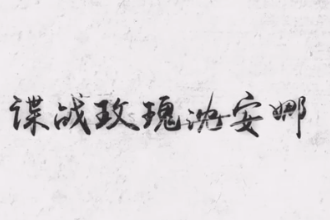 谍战玫瑰沈安娜